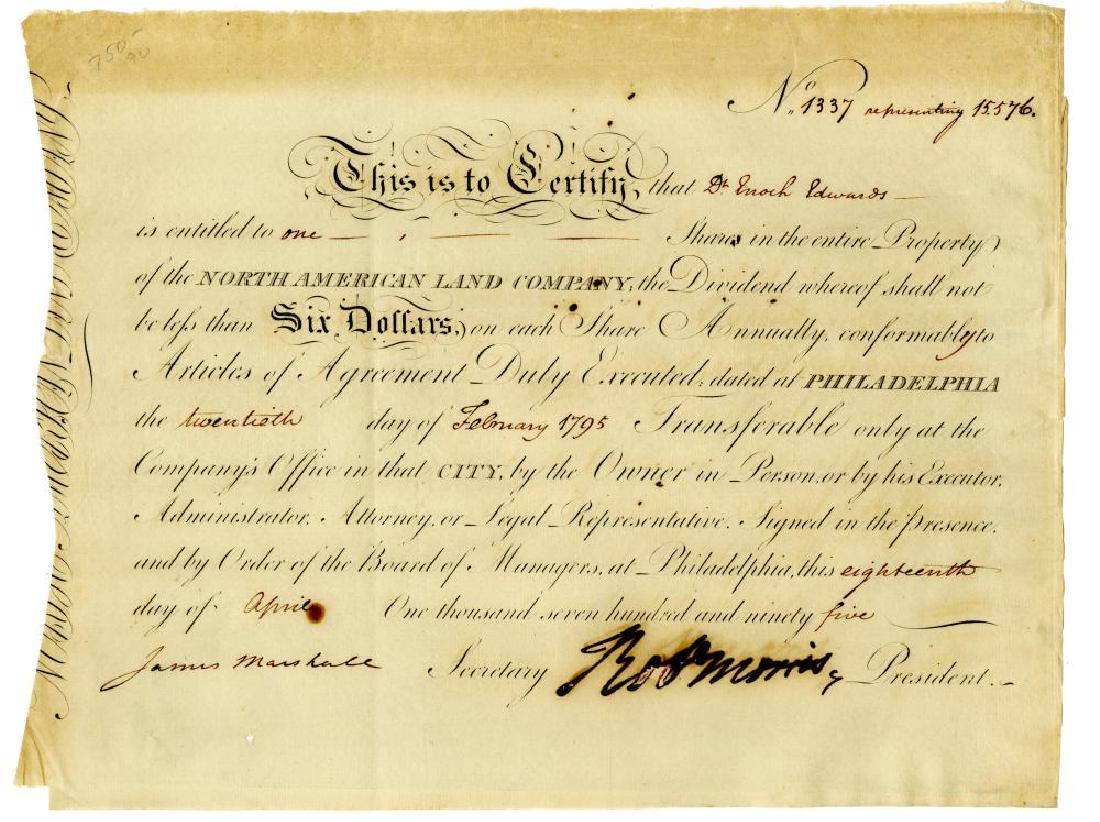 750-
90
No. 1337 representing 15.576.
This is to Certify, that Dr. Enoch Edwards
is entitled to one Share in the entire Property
of the NORTH AMERICAN LAND COMPANY, the Dividend whereof shall not
be less than Six Dollars, on each Share Annually, conformably to
Articles of Agreement Duly Executed; dated at PHILADELPHIA
the twentieth day of February 1795 Transferable only at the
Company's Office in that CITY, by the Owner in Person, or by his Executor,
Administrator, Attorney, or Legal Representative. Signed in the presence,
and by Order of the Board of Managers, at Philadelphia, this eighteenth
day of April One thousand seven hundred and ninety five
James Marshall Secretary Robt Morris President.